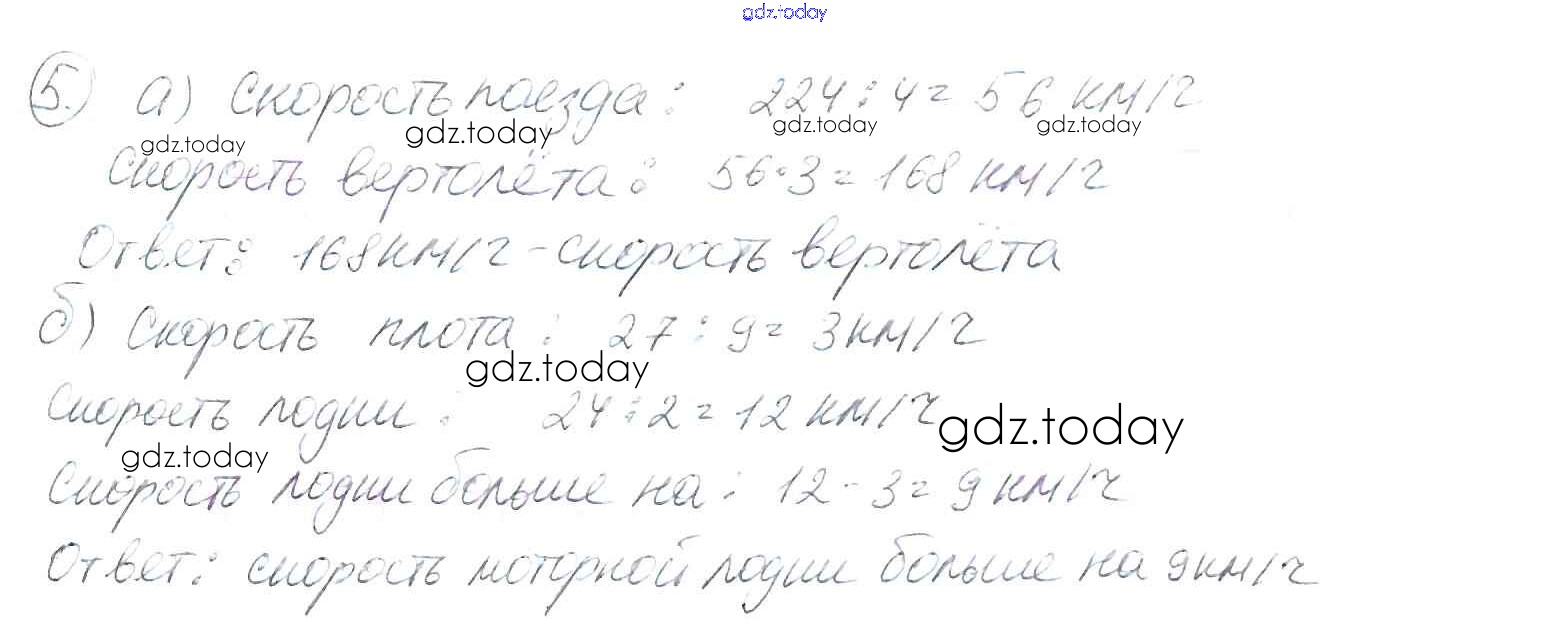 gdz.today
5. а) Скорость поезда: 224 : 4 = 56 км/ч
gdz.today gdz.today gdz.today gdz.today
Скорость вертолёта: 56 · 3 = 168 км/ч
Ответ: 168 км/ч - скорость вертолёта
б) Скорость плота: 27 : 9 = 3 км/ч
gdz.today
Скорость лодки: 24 : 2 = 12 км/ч
gdz.today
gdz.today
Скорость лодки больше на: 12 - 3 = 9 км/ч
Ответ: скорость моторной лодки больше на 9 км/ч